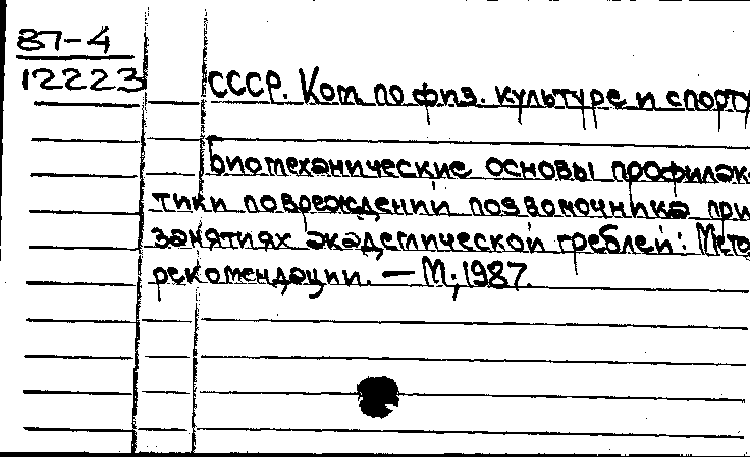 87-4
12223
СССР. Ком. по физ. культуре и спорту
Биомеханические основы профилак-
тики повреждений позвоночника при
занятиях академической греблей: Мето
рекомендации. — М., 1987.